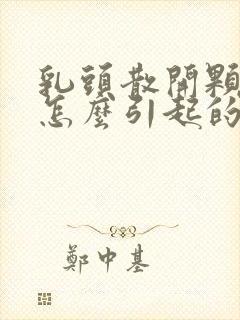 乳頭散開顆
怎麼引起的
鄭中基